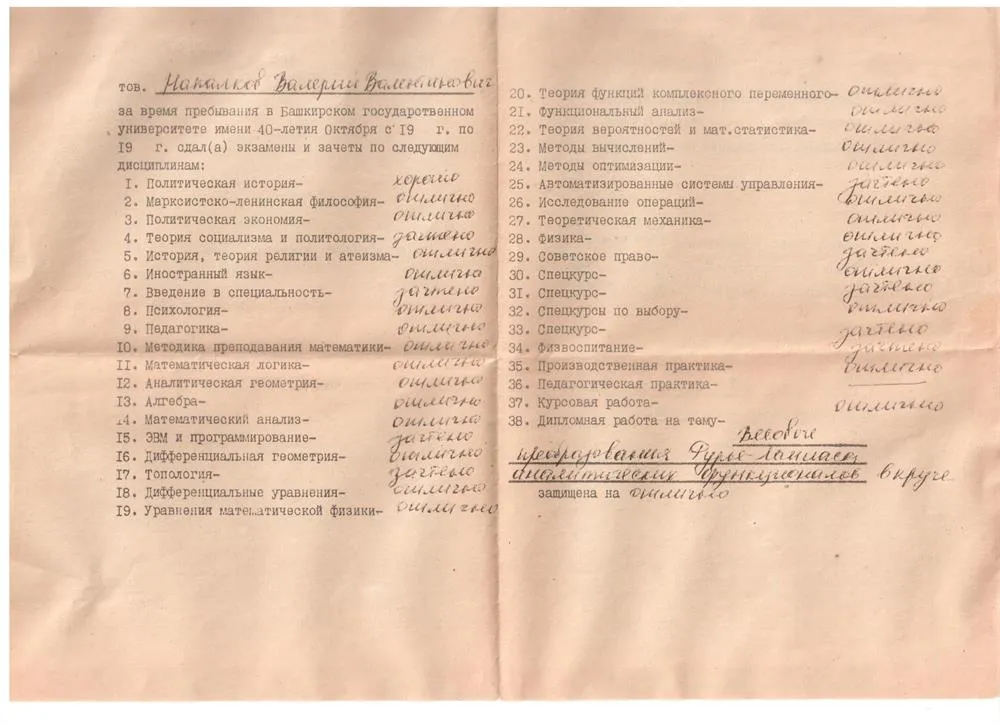 тов. Напалков Валерий Валентинович
за время пребывания в Башкирском государственном
университете имени 40-летия Октября с 19 г. по
19 г. сдал(а) экзамены и зачеты по следующим
дисциплинам:
1. Политическая история- хорошо
2. Марксистско-ленинская философия- отлично
3. Политическая экономия- отлично
4. Теория социализма и политология- зачтено
5. История, теория религии и атеизма- отлично
6. Иностранный язык- отлично
7. Введение в специальность- зачтено
8. Психология- отлично
9. Педагогика- отлично
10. Методика преподавания математики- отлично
11. Математическая логика- отлично
12. Аналитическая геометрия- отлично
13. Алгебра- отлично
14. Математический анализ- отлично
15. ЭВМ и программирование- зачтено
16. Дифференциальная геометрия- отлично
17. Топология- зачтено
18. Дифференциальные уравнения- отлично
19. Уравнения математической физики- отлично
20. Теория функций комплексного переменного- отлично
21. Функциональный анализ- отлично
22. Теория вероятностей и мат.статистика- отлично
23. Методы вычислений- отлично
24. Методы оптимизации- отлично
25. Автоматизированные системы управления- зачтено
26. Исследование операций- отлично
27. Теоретическая механика- отлично
28. Физика- отлично
29. Советское право- зачтено
30. Спецкурс- отлично
31. Спецкурс- зачтено
32. Спецкурсы по выбору- отлично
33. Спецкурс- зачтено
34. Физвоспитание- зачтено
35. Производственная практика- отлично
36. Педагогическая практика-
37. Курсовая работа- отлично
38. Дипломная работа на тему- Весовые
преобразования Фурье-Лапласа
аналитических функционалов в круге
защищена на отлично